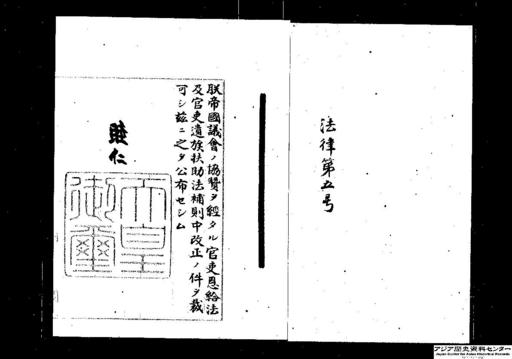 法律第五号
朕帝國議會ノ協賛ヲ經タル官吏恩給法
及官吏遺族扶助法補則中改正ノ件ヲ裁
可シ茲ニ之ヲ公布セシム
睦仁
天皇
御璽
アジア歴史資料センター
Japan Center for Asian Historical Records